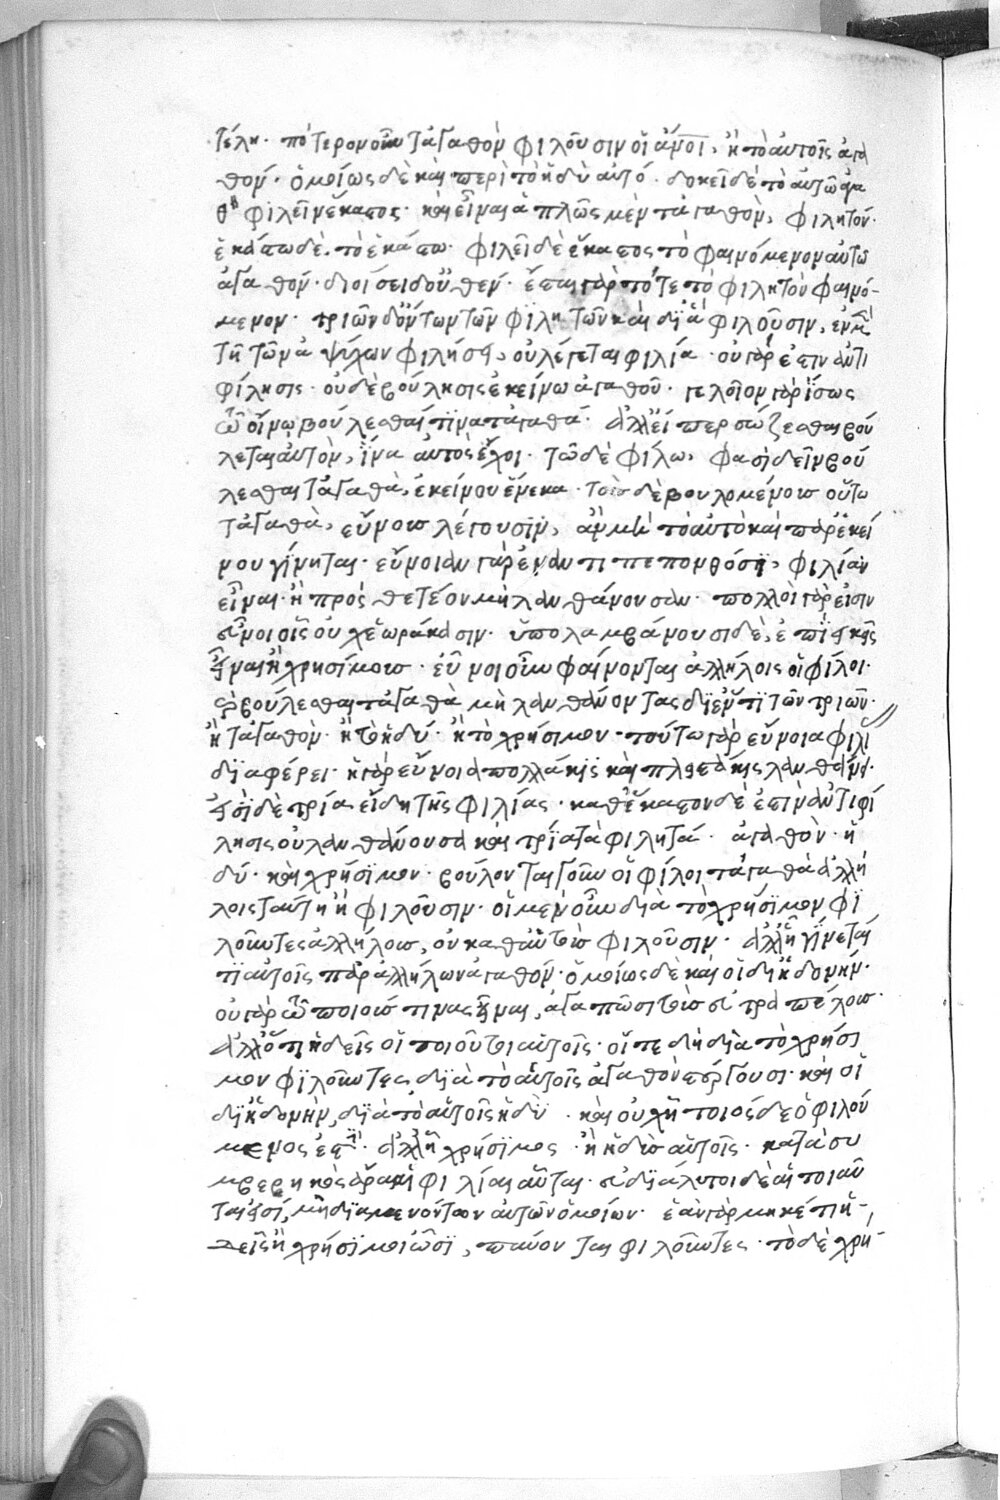 τέλη· πότερον οὖν τἀγαθὸν φιλοῦσιν οἱ ἄνοι, ἢ τὸ αὑτοῖς ἀγα
θόν· ὁμοίως δὲ καὶ περὶ τὸ ἡδὺ αὐτό. δοκεῖ δὲ τὸ αὑτῶ ἀγα
θὸν φιλεῖν ἕκαστος· καὶ εἶναι ἁπλῶς μὲν τἀγαθὸν, φιλητόν·
ἑκάστω δὲ τὸ ἑκάστω· φιλεῖ δὲ ἕκαστος τὸ φαινόμενον αὑτῶ
ἀγαθόν· διοίσει δ' οὐθέν· ἔσται γὰρ τότε τὸ φιλητὸν φαινό-
μενον· τριῶν δ' ὄντων τῶν φιλητῶν καὶ δι' ἃ φιλοῦσιν, ἐν μὲν
τῆ τῶν ἀψύχων φιλήσει, οὐ λέγεται φιλία· οὐ γάρ ἐστιν ἀντι
φίλησις· οὐδὲ βούλησις ἐκείνω ἀγαθοῦ· γελοῖον γὰρ ἴσως
ὦ οἴνω βούλεσθαί τινα τἀγαθά· ἀλλ' εἴπερ σώζεσθαι βού
λεται αὐτὸν, ἵνα αὐτὸς ἔχοι· τῶ δὲ φίλω, φασὶ δεῖν βού
λεσθαι τἀγαθὰ, ἐκείνου ἕνεκα· τοὺς δὲ βουλομένους οὕτω
τἀγαθὰ, εὔνους λέγουσιν, ἂν μὴ τὸ αὐτὸ καὶ παρ' ἐκεί
νου γίνηται· εὔνοιαν γὰρ ἐν ἀντιπεπονθόσι, φιλίαν
εἶναι· ἢ προσθετέον μὴ λανθάνουσαν· πολλοὶ γάρ εἰσιν
εὖνοι οἷς οὐχ ἑωράκασιν· ὑπολαμβάνουσι δὲ, ἐπιεικεῖς
εἶναι ἢ χρησίμους· εὖνοι οὖν φαίνονται ἀλλήλοις οἱ φίλοι·
βούλεσθαι τἀγαθὰ μὴ λανθάνοντας δι' ἕν τι τῶν τριῶν·
ἢ τἀγαθὸν· ἢ τὸ ἡδύ· ἢ τὸ χρήσιμον· τούτω γὰρ εὔνοια φιλί
διαφέρει· ἡ γὰρ εὔνοια πολλάκις καὶ πλειστάκις λανθάνει·
εἰσὶ δὲ τρία εἴδη τῆς φιλίας· καθ' ἕκαστον δὲ ἐστὶν ἀντιφί
λησις οὐ λανθάνουσα καὶ τρία τὰ φιλητά· ἀγαθὸν· ἡ
δύ· καὶ χρήσιμον· βούλονται γοῦν οἱ φίλοι τἀγαθὰ ἀλλή
λοις ταύτη ἧ φιλοῦσιν· οἱ μὲν οὖν διὰ τὸ χρήσιμον φι
λοῦντες ἀλλήλους, οὐ καθ' αὑτοὺς φιλοῦσιν· ἀλλ' ἧ γίνεταί
τι αὐτοῖς παρ' ἀλλήλων ἀγαθόν· ὁμοίως δὲ καὶ οἱ δι' ἡδονήν·
οὐ γὰρ ὦ ποιούς τινας εἶναι, ἀγαπῶσι τοὺς εὐτραπέλους·
ἀλλ' ὅτι ἡδεῖς οἱ τοιοῦτοι αὐτοῖς· οἵτε δὴ διὰ τὸ χρήσι
μον φιλοῦντες, διὰ τὸ αὑτοῖς ἀγαθὸν στέργουσι· καὶ οἱ
δι' ἡδονὴν, διὰ τὸ αὑτοῖς ἡδὺ· καὶ οὐχ ἧ τοιόσδε ὁ φιλού
μενος ἐστὶ· ἀλλ' ἧ χρήσιμος· ἢ ἡδὺς αὐτοῖς· κατὰ συ
μβεβηκὸς ἄρα αἱ φιλίαι αὗται· εὐδιάλυτοι δὲ αἱ τοιαῦ
ται εἰσί, μὴ διαμενόντων αὐτῶν ὁμοίων· ἐὰν γὰρ μηκέτι ἡ-
δεῖς ἢ χρήσιμοι ὦσι, παύονται φιλοῦντες· τὸ δὲ χρή-